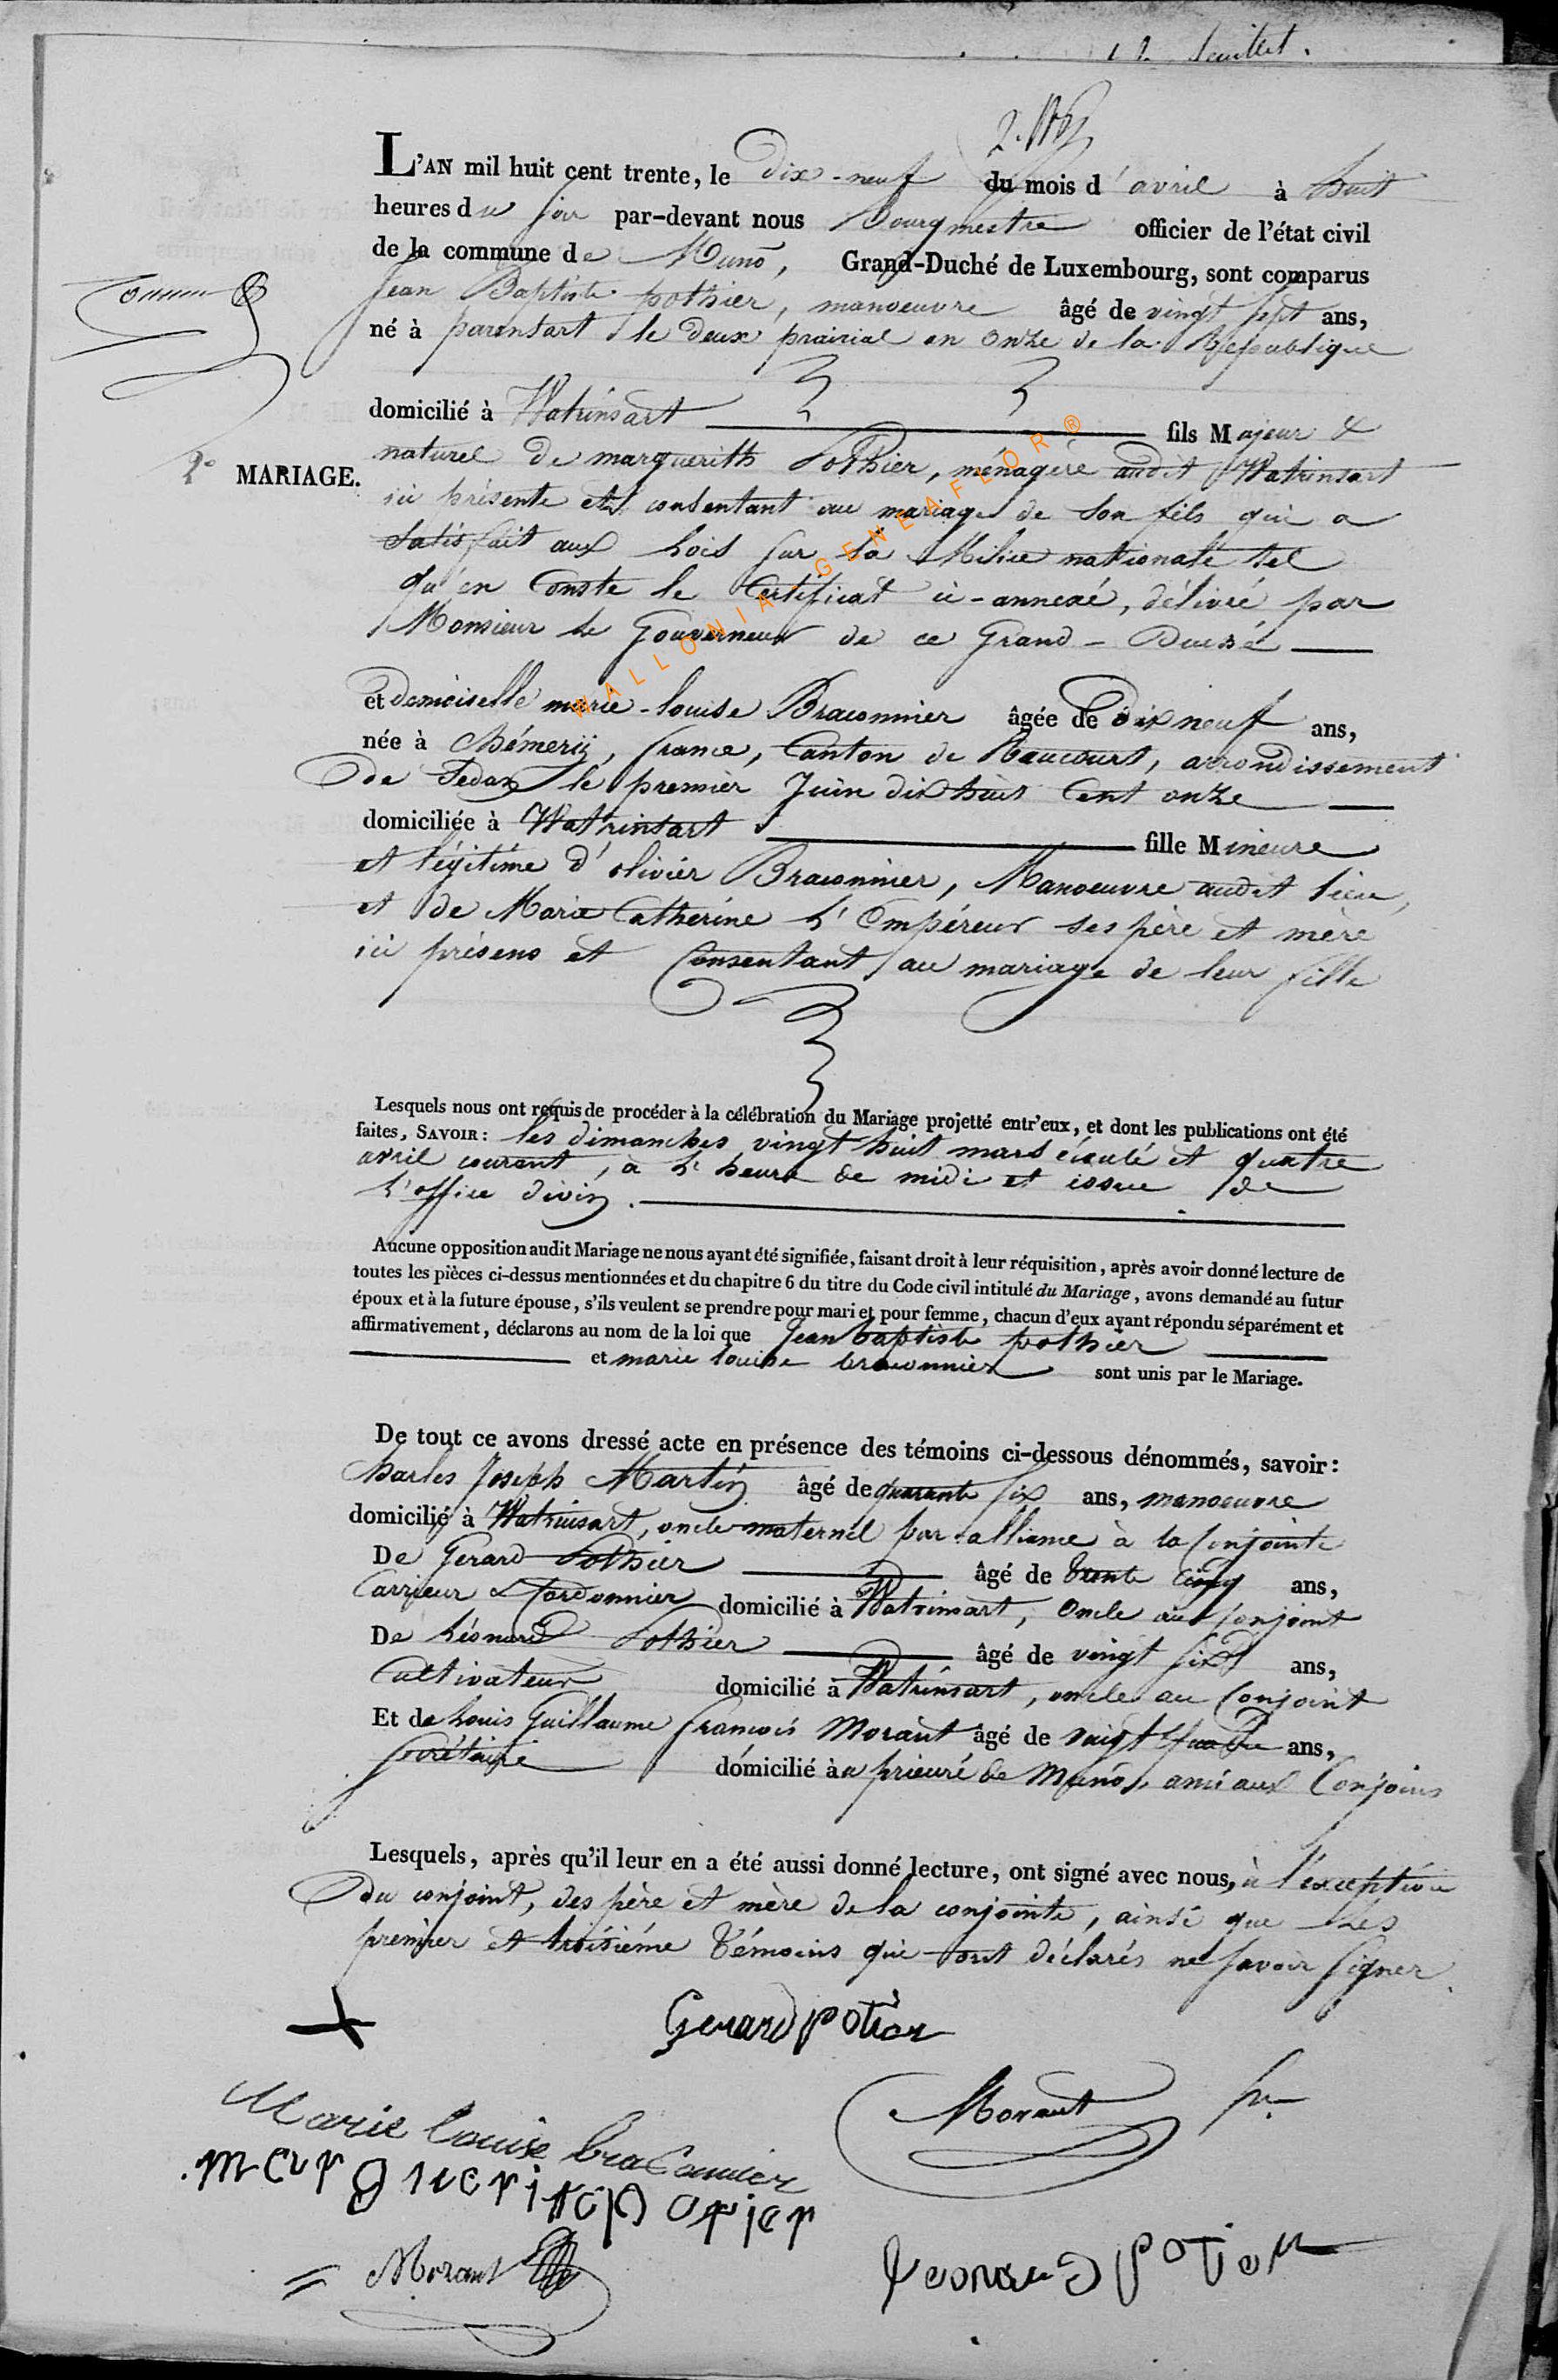 12 feuillet.
L'AN mil huit cent trente, le Dix-neuf du mois d'avril à huit
heures du jour par-devant nous Bourgmestre officier de l'état civil
de la commune de Muno, Grand-Duché de Luxembourg, sont comparus
Jean Baptiste pothier, manoeuvre âgé de vingt sept ans,
né à parensart le deux prairial an onze de la République
domicilié à Watrinsart fils Majeur &
naturel de marguerith Pothier, ménagère audit Watrinsart
2e MARIAGE.
ici présente et consentant au mariage de son fils qui a
satisfait aux Lois sur la Milice nationale tel
qu'en Conste le Certificat ci-annexé, délivré par
Monsieur le Gouverneur de ce Grand-Duché
et demoiselle marie-louise Braconnier âgée de dix neuf ans,
née à Chémerÿ, france, Canton de Raucourt, arrondissement
de Sedan le premier Juin dix huit Cent onze
domiciliée à Watrinsart fille Mineure
et légitime d'olivier Braconnier, Manoeuvre audit lieu,
et de Marie Catherine L'Empéreur ses père et mère
ici présens et Consentant au mariage de leur fille
Lesquels nous ont requis de procéder à la célébration du Mariage projetté entr'eux, et dont les publications ont été
faites, SAVOIR: les dimanches vingt huit mars écoulé et quatre
avril courant, à L'heure de midi et issue de
L'office divin.
Aucune opposition audit Mariage ne nous ayant été signifiée, faisant droit à leur réquisition, après avoir donné lecture de
toutes les pièces ci-dessus mentionnées et du chapitre 6 du titre du Code civil intitulé du Mariage, avons demandé au futur
époux et à la future épouse, s'ils veulent se prendre pour mari et pour femme, chacun d'eux ayant répondu séparément et
affirmativement, déclarons au nom de la loi que Jean baptiste pothier
et marie louise braconnier sont unis par le Mariage.
De tout ce avons dressé acte en présence des témoins ci-dessous dénommés, savoir:
Charles Joseph Martin âgé de quarante six ans, manoeuvre
domicilié à Watrinsart, oncle maternel par alliance à la Conjointe
De Gerard Pothier âgé de trente cinq ans,
Carrieur & Cordonnier domicilié à Watrinsart, Oncle au Conjoint
De Léonard Pothier âgé de vingt six ans,
Cultivateur domicilié à Watrinsart, oncle au Conjoint
Et de Louis Guillaume françois Morant âgé de vingt quatre ans,
Secrétaire domicilié au prieuré de Muno, ami aux Conjoins
Lesquels, après qu'il leur en a été aussi donné lecture, ont signé avec nous, à l'exception
du conjoint, des père et mère de la conjointe, ainsi que les
premier et troisiéme témoins qui ont déclarés ne savoir signer.
Gerard potier
Morant
Marie louise braConnier
marguerite potier
Morant
Leonard potier
WALLONIA - GENEAFLOR®